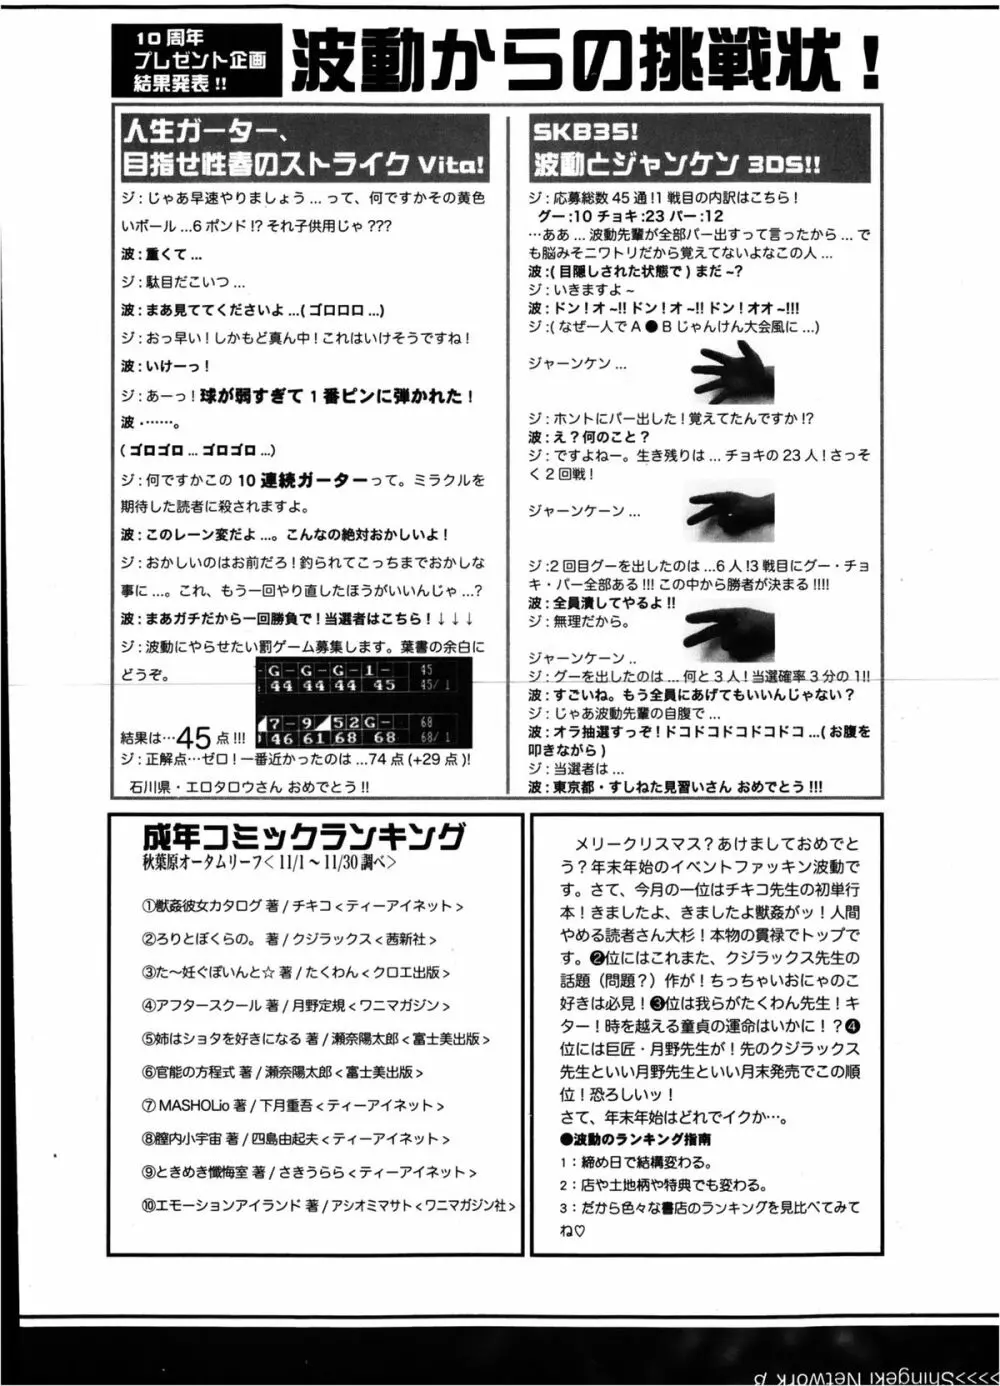 10周年
プレゼント企画
結果発表!!
波動からの挑戦状！
人生ガーター、
目指せ性春のストライク Vita!
ジ：じゃあ早速やりましょう … って、何ですかその黄色
いボール …6 ポンド !? それ子供用じゃ ???
波：重くて …
ジ：駄目だこいつ …
波：まあ見ててくださいよ …( ゴロロロ …)
ジ：おっ早い！しかもど真ん中！これはいけそうですね！
波：いけーっ！
ジ：あーっ！球が弱すぎて 1 番ピンに弾かれた！
波・……。
( ゴロゴロ … ゴロゴロ …)
ジ：何ですかこの 10 連続ガーターって。ミラクルを
期待した読者に殺されますよ。
波：このレーン変だよ …。こんなの絶対おかしいよ！
ジ：おかしいのはお前だろ！釣られてこっちまでおかしな
事に …。これ、もう一回やり直したほうがいいんじゃ …?
波：まあガチだから一回勝負で！当選者はこちら！↓↓↓
ジ：波動にやらせたい罰ゲーム募集します。葉書の余白に
どうぞ。
G - G - G - 1 - 45
44 44 44 45 45/ 1
7 - 9 52G - 68
46 61 68 68 68/ 1
結果は…45 点 !!!
ジ：正解点…ゼロ！一番近かったのは …74 点 (+29 点 )!
石川県・エロタロウさん おめでとう !!
SKB35!
波動とジャンケン 3DS!!
ジ：応募総数 45 通！1 戦目の内訳はこちら！
グー :10 チョキ :23 パー :12
…ああ … 波動先輩が全部パー出すって言ったから … で
も脳みそニワトリだから覚えてないよなこの人 …
波：( 目隠しされた状態で ) まだ ~?
ジ：いきますよ～
波：ドン！オ ~!! ドン！オ ~!! ドン！オオ ~!!!
ジ：( なぜ一人で A ● B じゃんけん大会風に …)
ジャーンケン …
ジ：ホントにパー出した！覚えてたんですか !?
波：え？何のこと？
ジ：ですよねー。生き残りは … チョキの 23 人！さっそ
く 2 回戦！
ジャーンケーン …
ジ：2 回目グーを出したのは …6 人！3 戦目にグー・チョ
キ・パー全部ある !!! この中から勝者が決まる !!!!
波：全員潰してやるよ !!
ジ：無理だから。
ジャーンケーン ..
ジ：グーを出したのは … 何と 3 人！当選確率 3 分の 1!!
波：すごいね。もう全員にあげてもいいんじゃない？
ジ：じゃあ波動先輩の自腹で …
波：オラ抽選すっぞ！ドコドコドコドコドコ …( お腹を
叩きながら )
ジ：当選者は …
波：東京都・すしねた見習いさん おめでとう !!!
成年コミックランキング
秋葉原オータムリーフ< 11/1 ～ 11/30 調べ>
①獣姦彼女カタログ 著 / チキコ < ティーアイネット >
②ろりとぼくらの。 著 / クジラックス < 茜新社 >
③た～妊ぐぽいんと☆ 著 / たくわん < クロエ出版 >
④アフタースクール 著 / 月野定規 < ワニマガジン >
⑤姉はショタを好きになる 著 / 瀬奈陽太郎 < 富士美出版 >
⑥官能の方程式 著 / 瀬奈陽太郎 < 富士美出版 >
⑦ MASHOLio 著 / 下月重吾 < ティーアイネット >
⑧膣内小宇宙 著 / 四島由起夫 < ティーアイネット >
⑨ときめき懺悔室 著 / さきうらら < ティーアイネット >
⑩エモーションアイランド 著 / アシオミマサト < ワニマガジン社 >
メリークリスマス？あけましておめでと
う？年末年始のイベントファッキン波動で
す。さて、今月の一位はチキコ先生の初単行
本！きましたよ、きましたよ獣姦がッ！人間
やめる読者さん大杉！本物の貫禄でトップで
す。❷位にはこれまた、クジラックス先生の
話題（問題？）作が！ちっちゃいおにゃのこ
好きは必見！❸位は我らがたくわん先生！キ
ター！時を越える童貞の運命はいかに！？❹
位には巨匠・月野先生が！先のクジラックス
先生といい月野先生といい月末発売でこの順
位！恐ろしいッ！
さて、年末年始はどれでイクか…。
●波動のランキング指南
1：締め日で結構変わる。
2：店や土地柄や特典でも変わる。
3：だから色々な書店のランキングを見比べてみて
ね♡
>>>>>Shingeki Network β